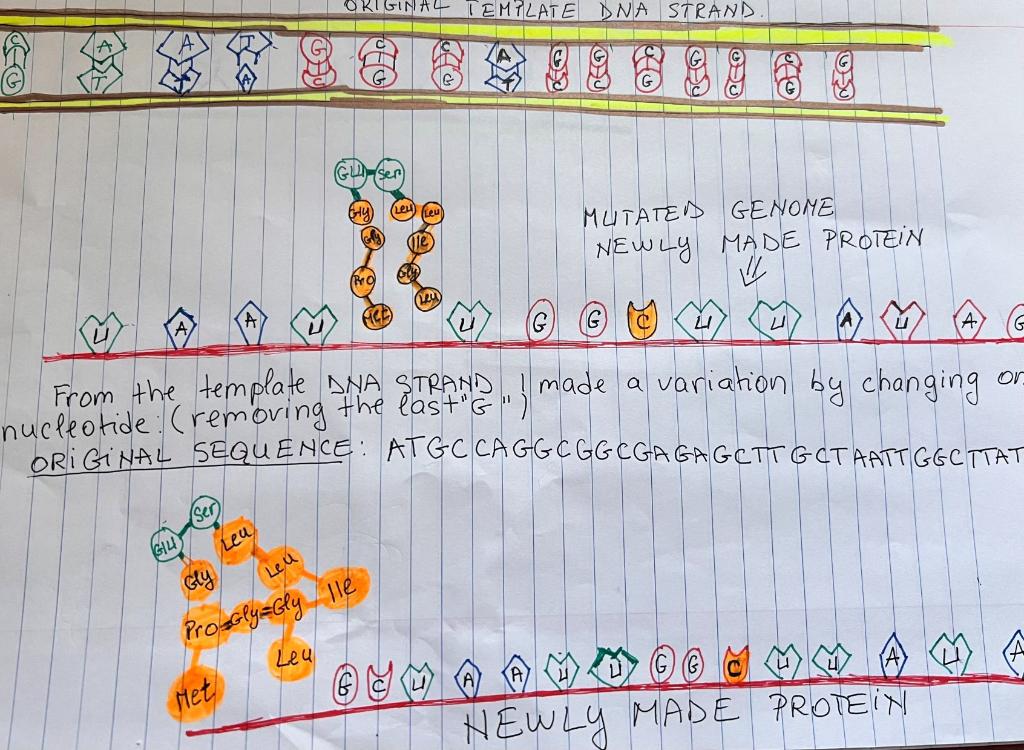 ORIGINAL TEMPLATE DNA STRAND.
C A A T G C C A C G C G G C G
G T T A C G G T G C G C C G C
GLU Ser
Gly Leu Leu
Gly Ile
Pro Gly
Met Leu
MUTATED GENOME
NEWLY MADE PROTEIN
U A A U U G G C U U A U A G
From the template DNA STRAND I made a variation by changing on
nucleotide: (removing the last "G")
ORIGINAL SEQUENCE: ATGCCAGGCGGCGAGAGCTTGCTAATTGGCTTAT
Ser
GLU Leu
Gly Leu Ile
Pro Gly Gly
Leu
Met
G C U A A U U G G C U U A U A
NEWLY MADE PROTEIN